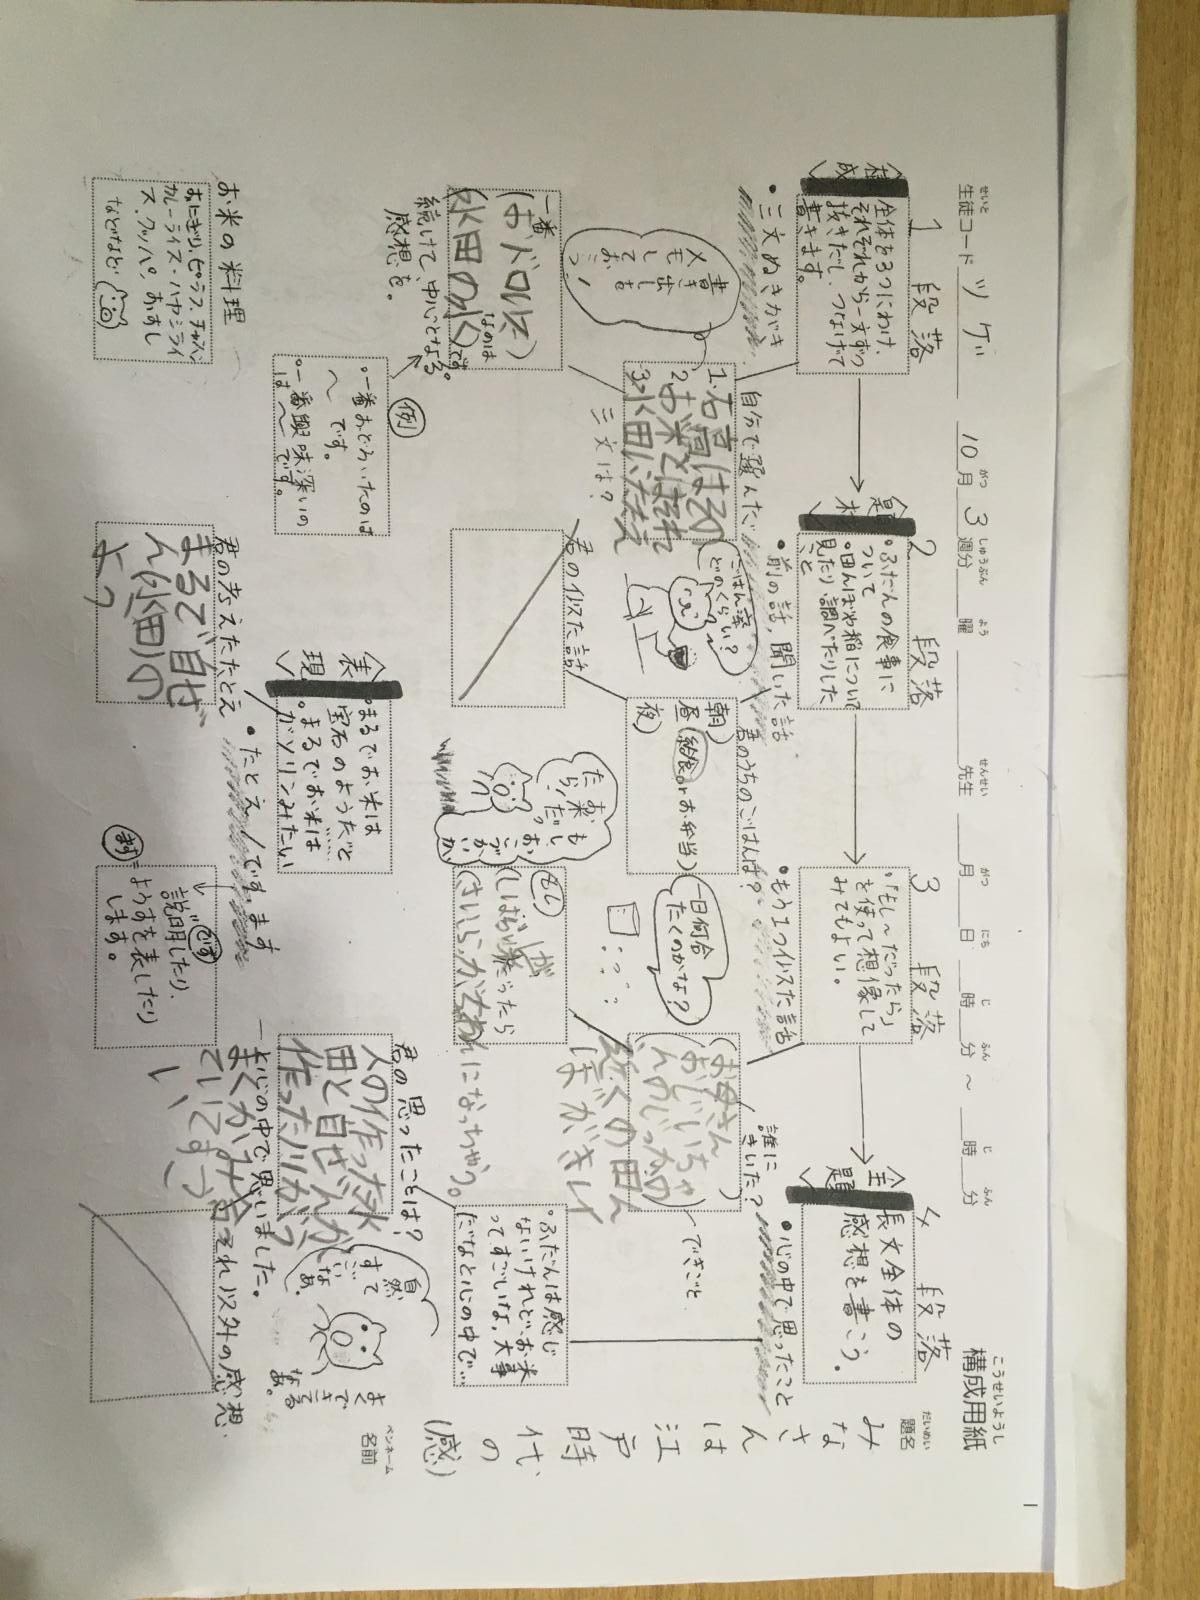 構成用紙
こうせいようし
生徒コード ツゲ 10月3週分 曜 先生 月 日 時 分 ～ 時 分
題名
だいめい
みなさんは江戸時代、の(感)
ペンネーム
名前
1 段落
〈構成〉
全体を3つにわけ、
それぞれから一文ずつ
抜きだし、つなげて
書きます。
・三文ぬきがき
書き出し
メモしておこう!
自分で選んだ
三文は?
1.石高は
2お米とは
3水田にたたえ
一番
(おドロいた)
なのは
(水田の水)です。
続けて、中心となる
感想を。
例
・一番おどろいたのは
～です。
・一番興味深いの
は～です。
お米の料理
おにぎり、ピラフ、チャーハン
カレーライス・ハヤシライ
ス、クッパ、おすし
などなど
2 段落
〈題材〉
・ふだんの食事に
ついて
・田んぼや稲について
見たり、調べたりした
こと
・前の話,聞いた話
ごはん
どのくらい?
君のうちのごはんは?
朝)
昼(給食orお弁当)
夜)
一日何合
たくのかな?
君のイドスた話
〈表現〉
・まるでお米は
宝石のようだと
・まるでお米は
ガソリンみたい
・たとえ
君の考えたたとえ
まるで自ぜ
ん水田の
よう
です、ます
ます=ようすを表したり
説明したり、
します。
です
3 段落
・「もし～だったら」
を使って想像して
みてもよい。
・もう1つイドスた話
誰に
きいた?
(お母さん)
(おじいちゃ
んのじっかの)
近くの田ん
ぼがきレイ
できごと
もし
(しばらく)が
だったら
になっちゃう。
4 段落
〈主題〉
長文全体の
感想を書こう。
・心の中で思ったこと
・ふだんは感じ
ないけれど、お米
ってすごいな、大事
だなと心の中で…
君の思ったことは?
人の作った水
田と自ぜんが
作った川か?
まくがみ合
ていてすごい
と心の中で思いました。
自然
すごい
なあ。
よく
できて
るなあ。
それ以外の感想